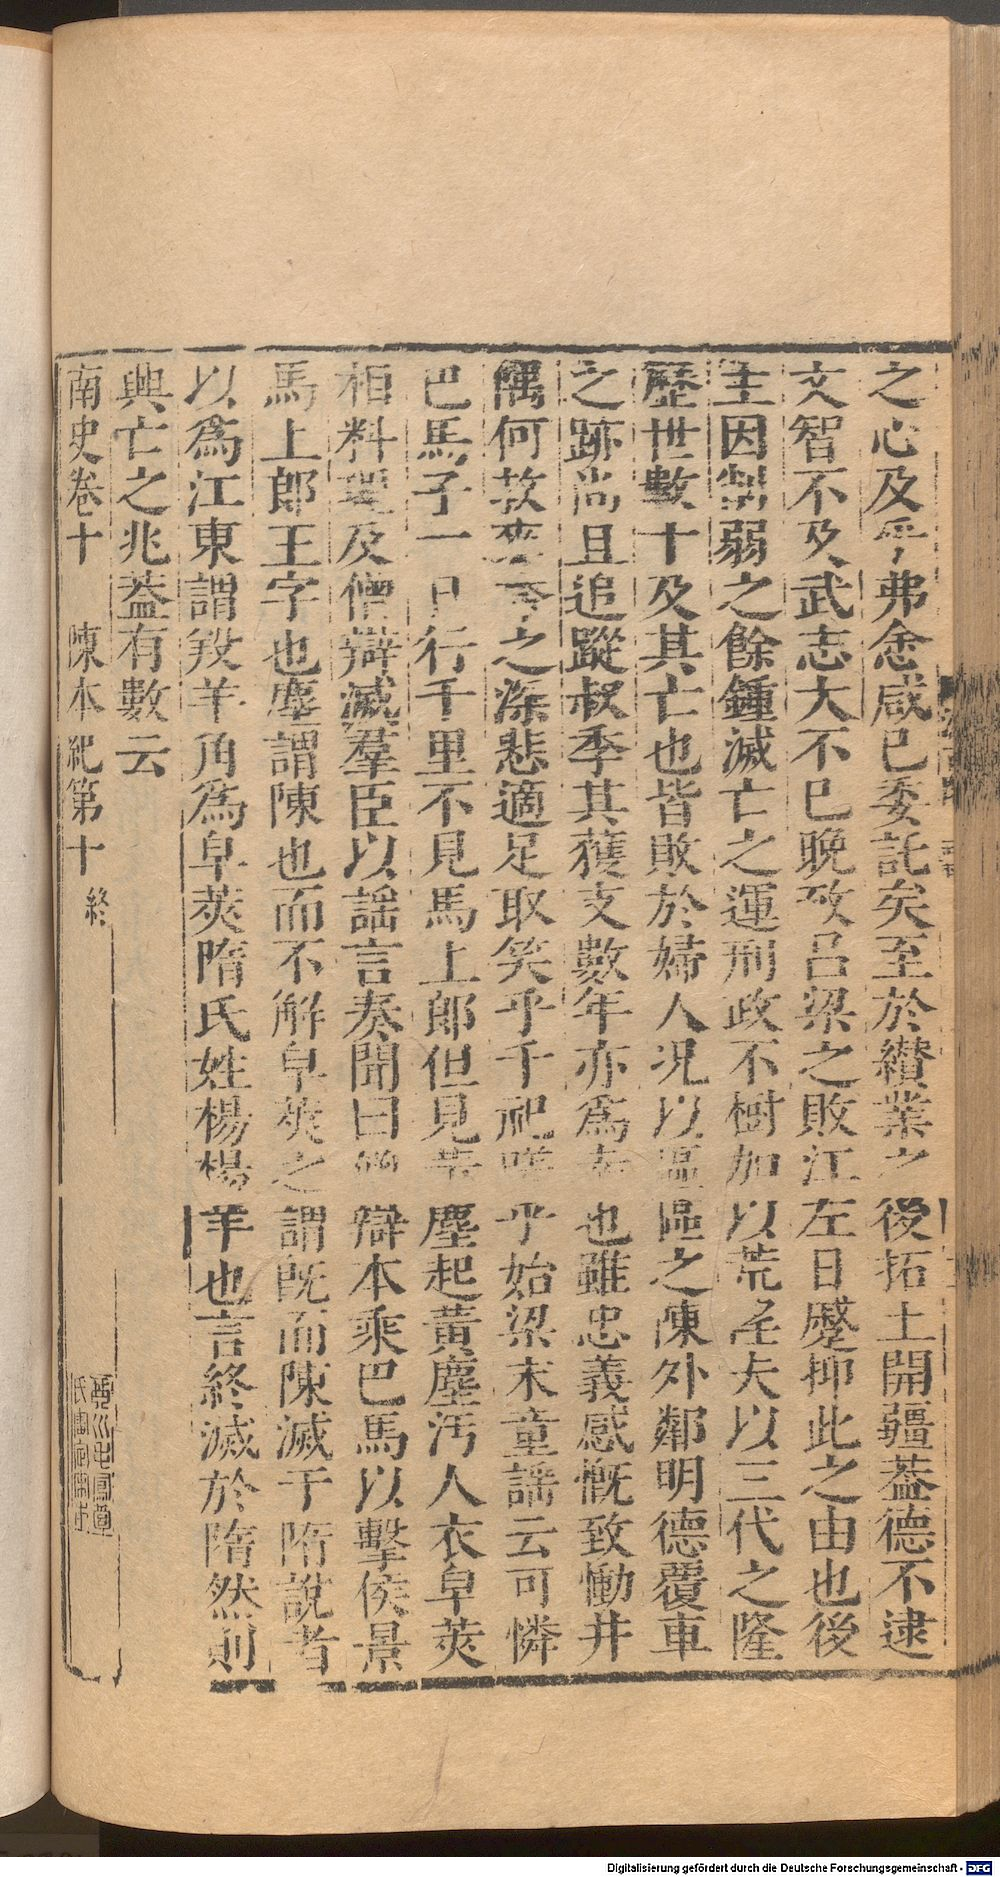 之心及乎弗悆咸已委託矣至於纉業之後拓土開疆葢德不逮
文智不及武志大不已晚致呂梁之敗江左日蹙抑此之由也後
主因削弱之餘鍾滅亡之運刑政不樹加以荒淫夫以三代之隆
歷世數十及其亡也皆敗於婦人况以區區之陳外鄰明德覆車
之跡尚且追蹤叔季其獲支數年亦爲幸也雖忠義感慨致慟井
隅何救麥秀之深悲適足取笑乎千祀嗟乎始梁末童謡云可憐
巴馬子一日行千里不見馬上郎但見黄塵起黃塵汚人衣皁莢
相料理及僧辯滅羣臣以謡言奏聞曰僧辯本乘巴馬以擊侯景
馬上郎王字也塵謂陳也而不解皁莢之謂旣而陳滅于隋說者
以爲江東謂羖羊角爲皁莢隋氏姓楊楊羊也言終滅於隋然則
興亡之兆葢有數云
南史卷十 陳本紀第十 終
Digitalisierung gefördert durch die Deutsche Forschungsgemeinschaft - DFG